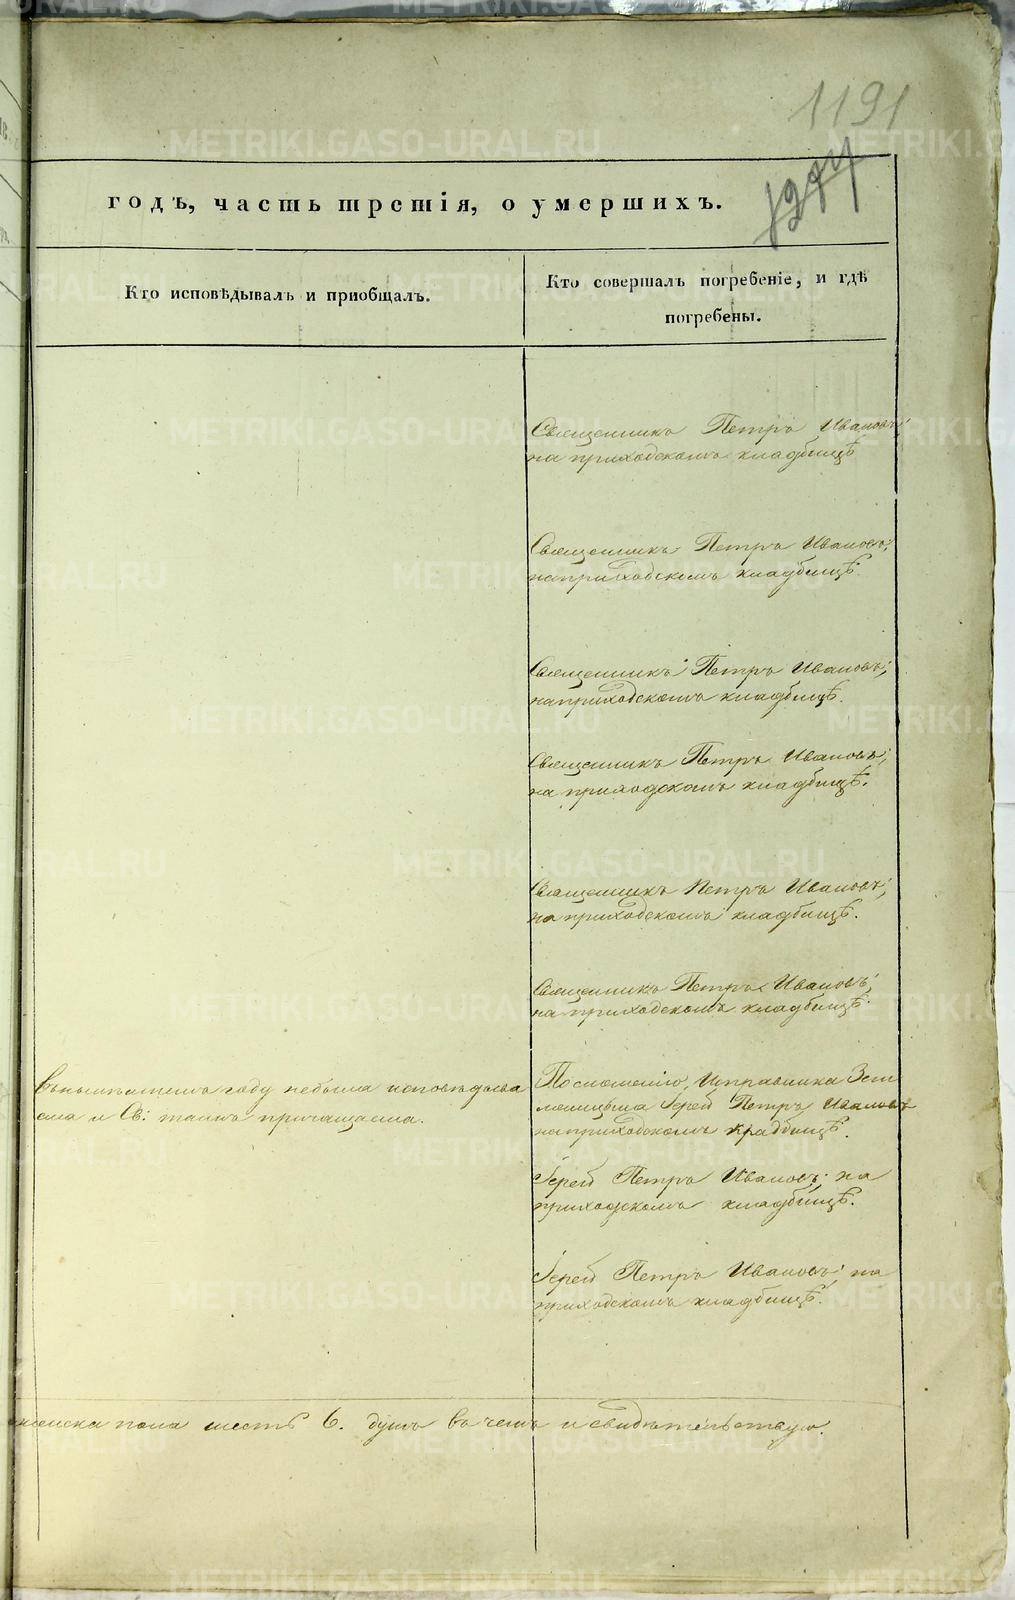 1191
1274
годъ, часть третія, о умершихъ.
Кто исповѣдывалъ и пріобщалъ.
Кто совершалъ погребеніе, и гдѣ
погребены.
Священникъ Петръ Ивановъ;
на приходскомъ кладбищѣ
Священникъ Петръ Ивановъ;
на приходскомъ кладбищѣ.
Священникъ Петръ Ивановъ;
на приходскомъ кладбищѣ.
Священникъ Петръ Ивановъ;
на приходскомъ кладбищѣ.
Священникъ Петръ Ивановъ;
на приходскомъ кладбищѣ.
Священникъ Петръ Ивановъ;
на приходскомъ кладбищѣ.
Въ нынѣшнемъ году небыла исповѣдыва
ема и Св: таинъ причащаема.
По сношенію Исправника
Іерей Петръ Ивановъ
на приходскомъ кладбищѣ.
Іерей Петръ Ивановъ; на
приходскомъ кладбищѣ.
Іерей Петръ Ивановъ; на
приходскомъ кладбищѣ.
женска пола шесть 6. душъ въ чемъ и свидѣтельствую.
METRIKI.GASO-URAL.RU